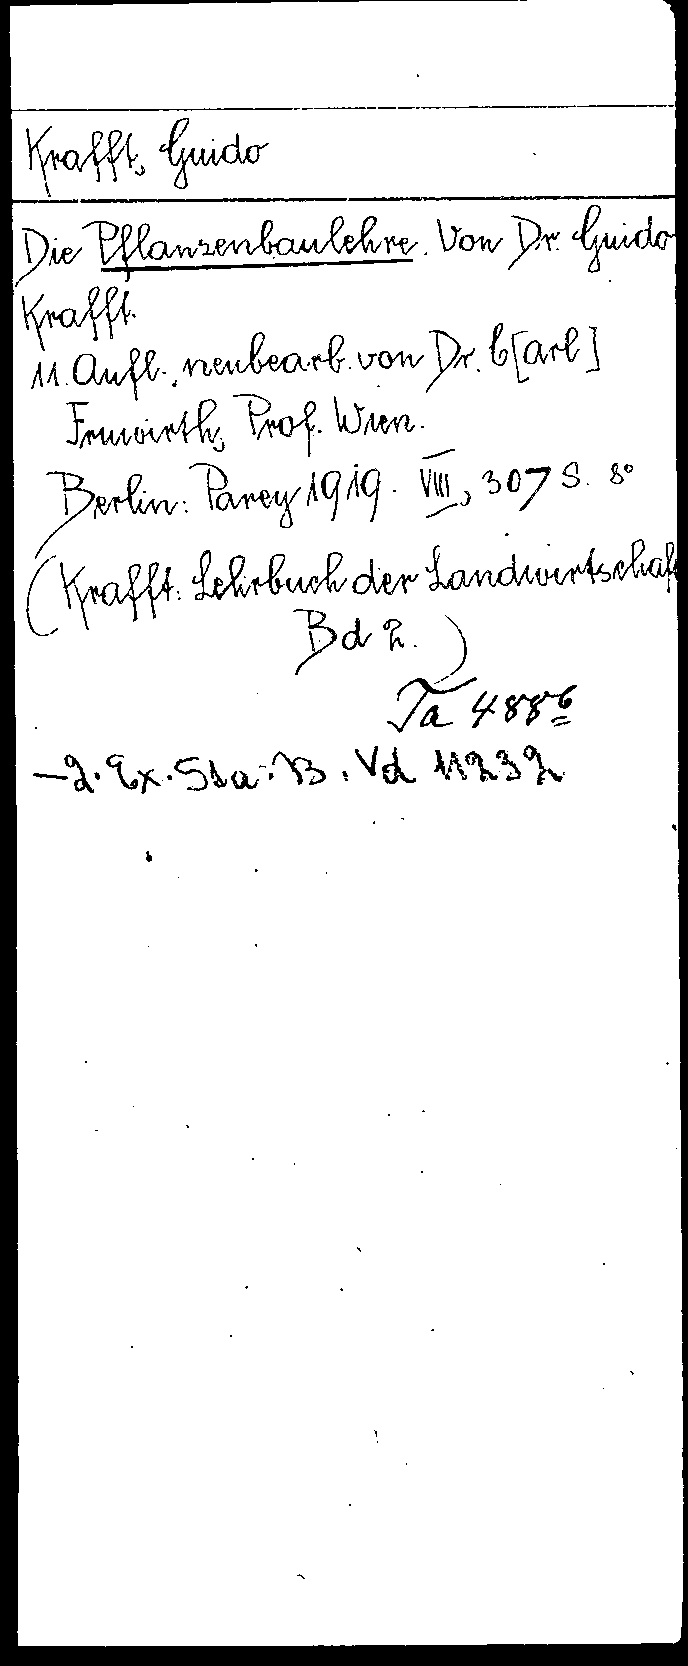 Krafft, Guido
Die Pflanzenbaulehre. Von Dr. Guido
Krafft.
11. Aufl., neubearb. von Dr. C[arl]
Fruwirth, Prof. Wien.
Berlin: Parey 1919. VIII, 307 S. 8°
(Krafft: Lehrbuch der Landwirtschaf
Bd 2.)
Ta 488⁶
—2. Ex. Sta. B. Vd 11232